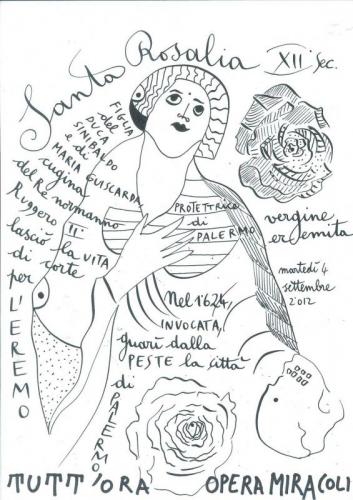 Santa Rosalia XII sec.
FIGLIA
del
DUCA
SINIBALDO
e di
MARIA GUISCARDA
cugina
del Re normanno
Ruggero II:
lasciò la VITA
di corte
per
L'EREMO
PROTETTRICE
di
PALERMO
vergine
eremita
martedì 4
settembre
2012
Nel 1624
INVOCATA,
guarì dalla
PESTE la città
di PALERMO,
TUTT'ORA OPERA MIRACOLI